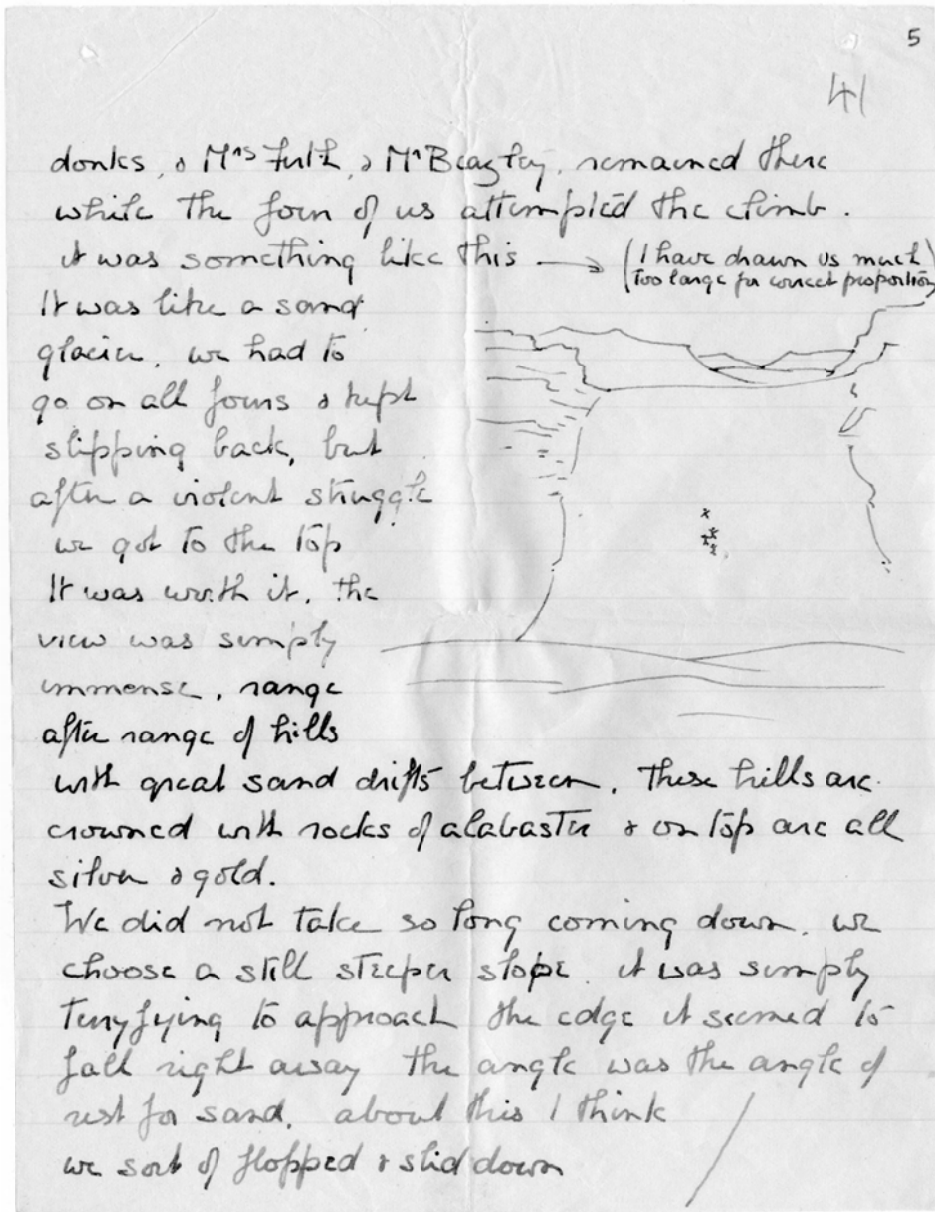 5
41
donks, & Mrs Firth, & Mr Beazley, remained there
while the four of us attempted the climb.
it was something like this → (I have drawn us much
too large for correct proportion)
It was like a sand
glacier. we had to
go on all fours & kept
slipping back, but
after a violent struggle
we got to the top
It was worth it. the
view was simply
immense, range
after range of hills
with great sand drifts between. These hills are
crowned with rocks of alabaster & on top are all
silver & gold.
We did not take so long coming down. we
choose a still steeper slope. it was simply
terryfying to approach the edge it seemed to
fall right away the angle was the angle of
rest for sand. about this I think
we sort of flopped & slid down